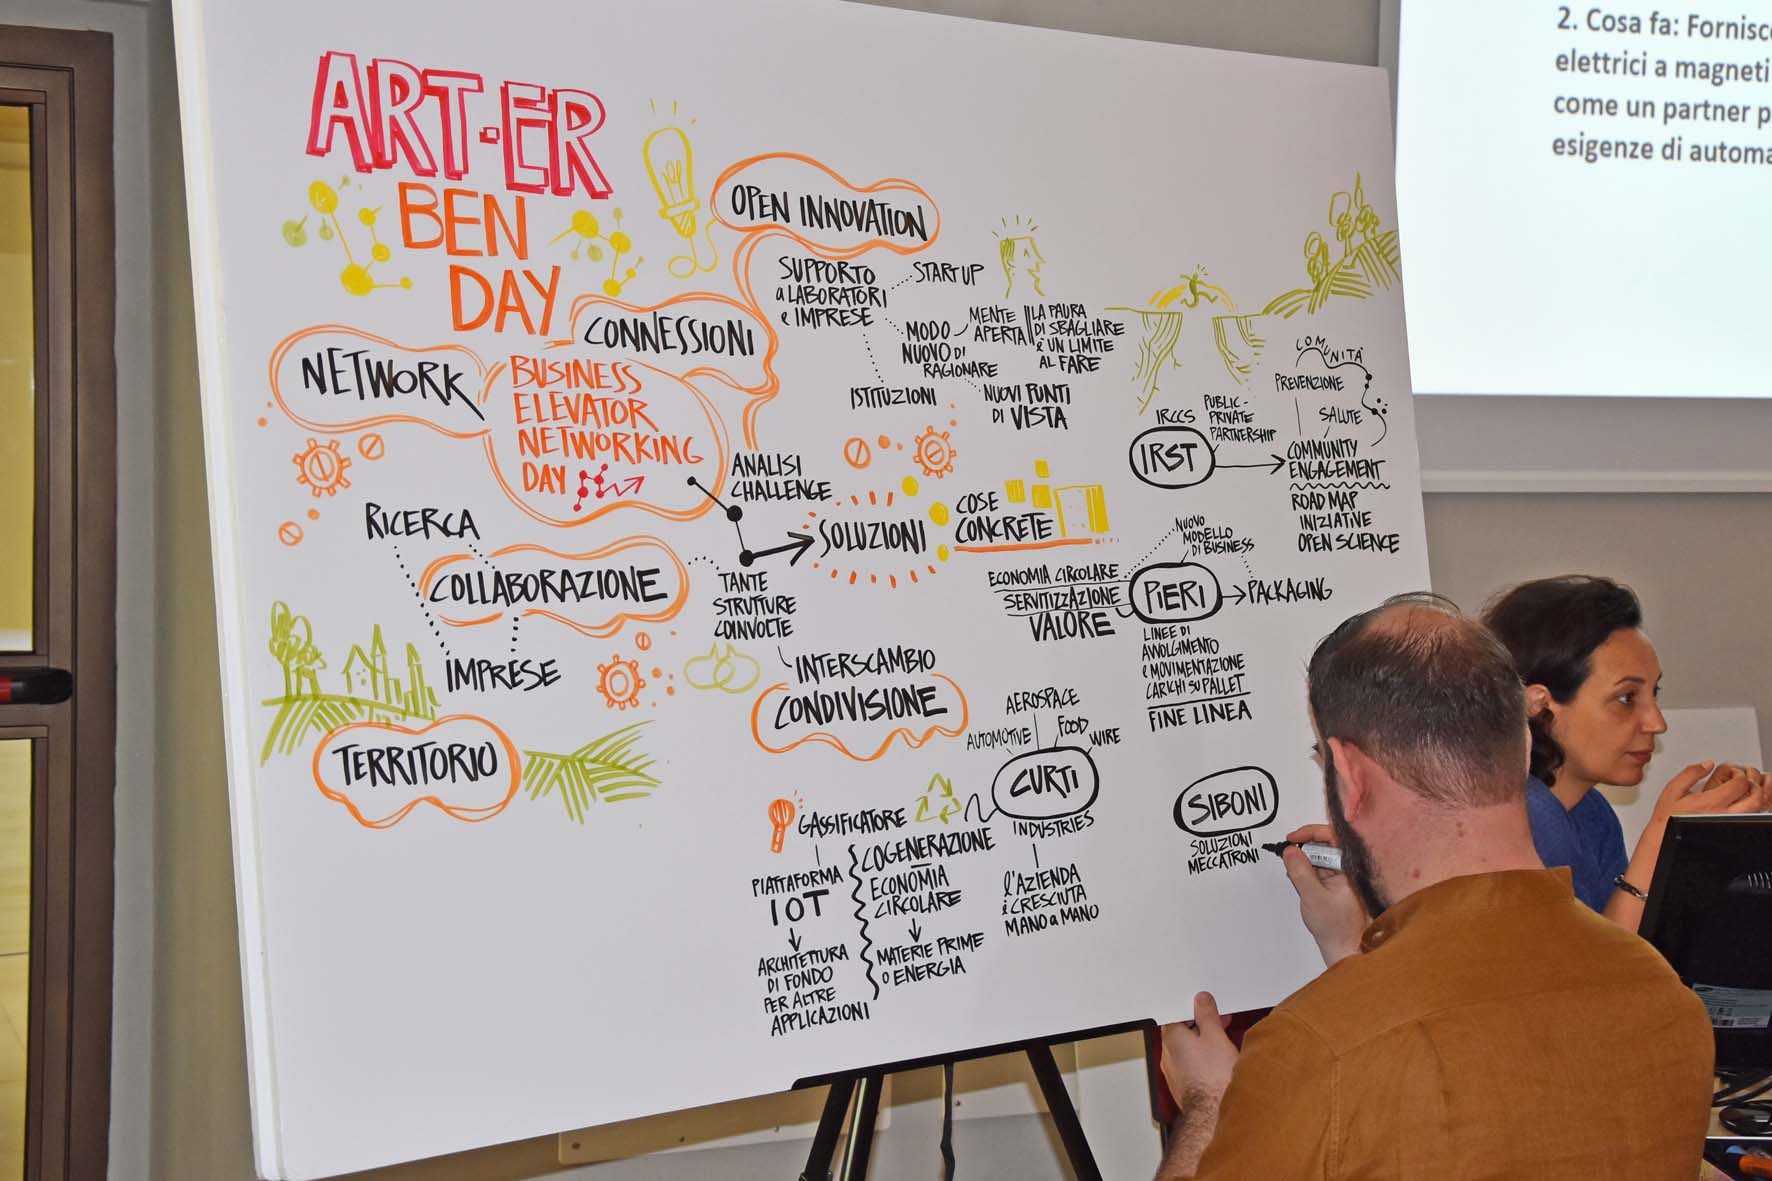 ART-ER
BEN
DAY
NETWORK
CONNESSIONI
BUSINESS
ELEVATOR
NETWORKING
DAY
OPEN INNOVATION
SUPPORTO
a LABORATORI
e IMPRESE
START UP
MODO
NUOVO DI
RAGIONARE
MENTE
APERTA
LA PAURA
DI SBAGLIARE
è UN LIMITE
AL FARE
ISTITUZIONI
NUOVI PUNTI
DI VISTA
ANALISI
CHALLENGE
SOLUZIONI
COSE
CONCRETE
RICERCA
COLLABORAZIONE
IMPRESE
TANTE
STRUTTURE
COINVOLTE
INTERSCAMBIO
CONDIVISIONE
TERRITORIO
IRCCS
IRST
PUBLIC-
PRIVATE
PARTNERSHIP
COMUNITÀ
PREVENZIONE
SALUTE
COMMUNITY
ENGAGEMENT
ROAD MAP
INIZIATIVE
OPEN SCIENCE
NUOVO
MODELLO
DI BUSINESS
ECONOMIA CIRCOLARE
SERVITIZZAZIONE
VALORE
PIERI
PACKAGING
LINEE DI
AVVOLGIMENTO
e MOVIMENTAZIONE
CARICHI SU PALLET
FINE LINEA
AEROSPACE
AUTOMOTIVE
FOOD
WIRE
CURTI
INDUSTRIES
L'AZIENDA
è CRESCIUTA
MANO a MANO
GASSIFICATORE
PIATTAFORMA
IOT
ARCHITETTURA
DI FONDO
PER ALTRE
APPLICAZIONI
COGENERAZIONE
ECONOMIA
CIRCOLARE
MATERIE PRIME
o ENERGIA
SIBONI
SOLUZIONI
MECCATRONI
2. Cosa fa: Fornisc
elettrici a magneti
come un partner p
esigenze di automa